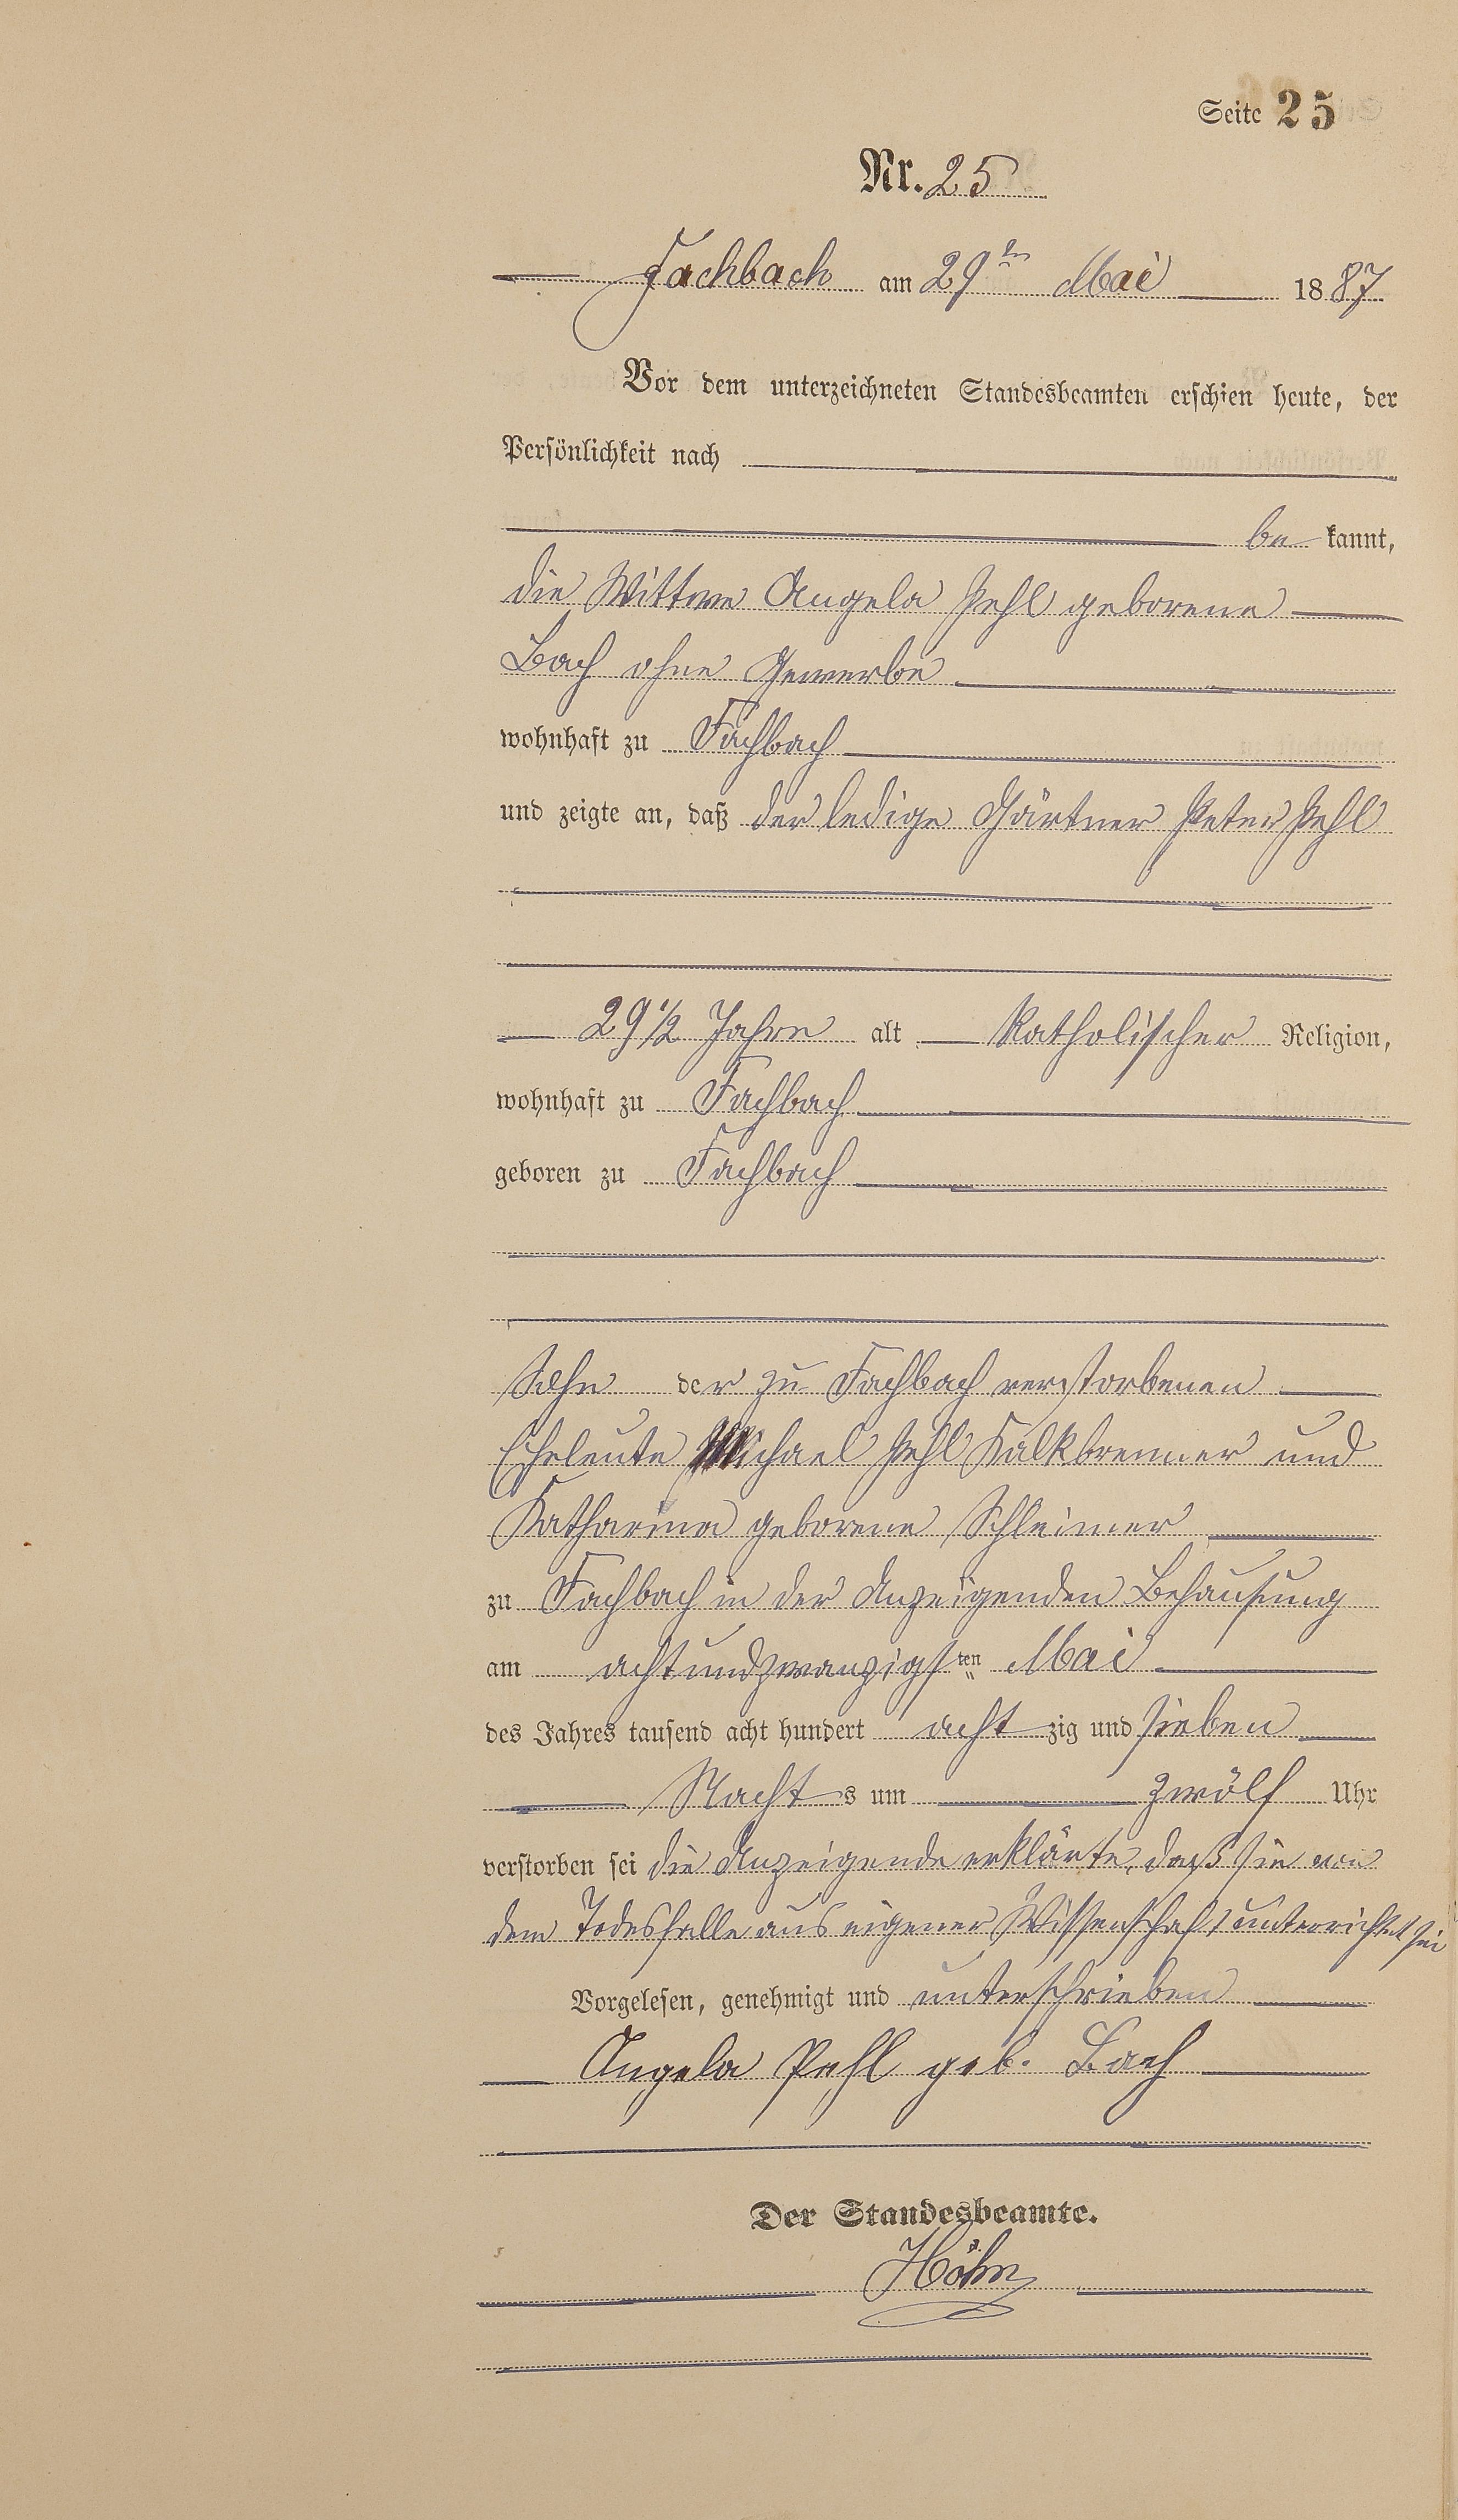 Seite 25
Nr. 25
Fachbach am 29ten Mai 1887
Vor dem unterzeichneten Standesbeamten erschien heute, der
Persönlichkeit nach
be kannt,
die Wittwe Angela Pehl geborene
Bach ohne Gewerbe
wohnhaft zu Fachbach
und zeigte an, daß der ledige Gärtner Peter Pehl
29 1/2 Jahre alt katholischer Religion,
wohnhaft zu Fachbach
geboren zu Fachbach
Sohn der zu Fachbach verstorbenen
Eheleute Michael Pehl Kalkbrenner und
Katharina geborene Schleimer
zu Fachbach in der Anzeigenden Behausung
am achtundzwanzigsten Mai
des Jahres tausend acht hundert acht zig und sieben
Nachts um zwölf Uhr
verstorben sei die Anzeigende erklärte, daß sie von
dem Todesfalle aus eigener Wissenschaft unterrichtet sei
Vorgelesen, genehmigt und unterschrieben
Angela Pehl geb. Bach
Der Standesbeamte.
Höhn